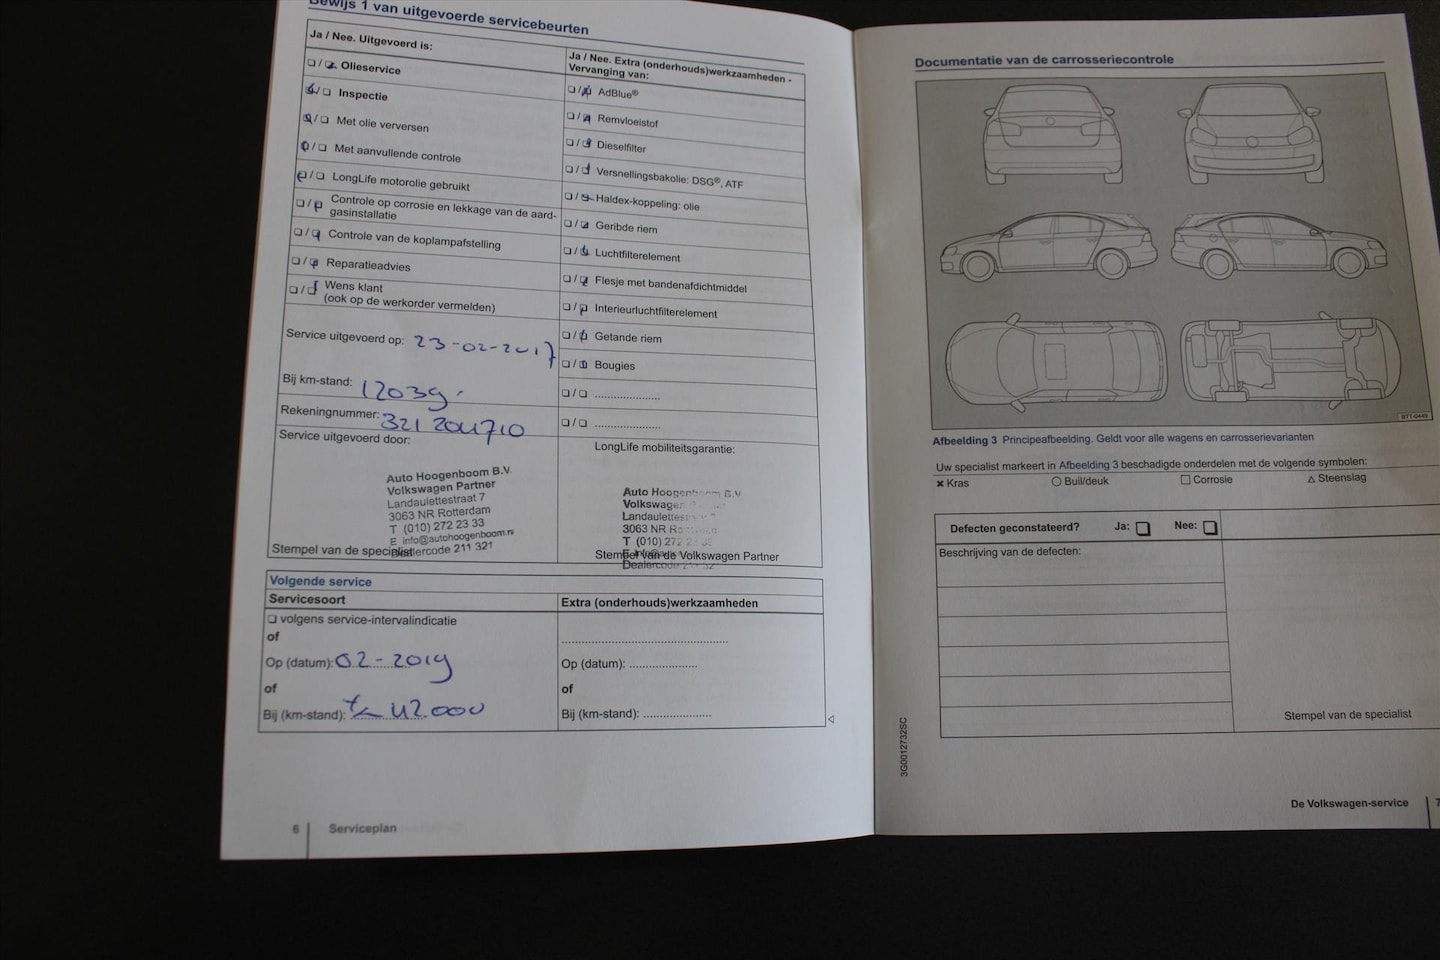 Bewijs 1 van uitgevoerde servicebeurten
Ja / Nee. Uitgevoerd is:
❏ / ❏ Olieservice
❏ / ❏ Inspectie
❏ / ❏ Met olie verversen
❏ / ❏ Met aanvullende controle
❏ / ❏ LongLife motorolie gebruikt
❏ / ❏ Controle op corrosie en lekkage van de aard-
gasinstallatie
❏ / ❏ Controle van de koplampafstelling
❏ / ❏ Reparatieadvies
❏ / ❏ Wens klant
(ook op de werkorder vermelden)
Service uitgevoerd op: 23-02-2017
Bij km-stand: 12039.
Rekeningnummer: 321 2011710
Service uitgevoerd door:
Auto Hoogenboom B.V.
Volkswagen Partner
Landaulettestraat 7
3063 NR Rotterdam
T (010) 272 23 33
E info@autohoogenboom.nl
Dealercode 211 321
Stempel van de specialist
Ja / Nee. Extra (onderhouds)werkzaamheden -
Vervanging van:
❏ / ❏ AdBlue®
❏ / ❏ Remvloeistof
❏ / ❏ Dieselfilter
❏ / ❏ Versnellingsbakolie: DSG®, ATF
❏ / ❏ Haldex-koppeling: olie
❏ / ❏ Geribde riem
❏ / ❏ Luchtfilterelement
❏ / ❏ Flesje met bandenafdichtmiddel
❏ / ❏ Interieurluchtfilterelement
❏ / ❏ Getande riem
❏ / ❏ Bougies
❏ / ❏ .....................
❏ / ❏ .....................
LongLife mobiliteitsgarantie:
Auto Hoogenboom B.V.
Volkswagen
Landaulettes
3063 NR
T (010) 272
Dealercode
Stempel van de Volkswagen Partner
Volgende service
Servicesoort
❏ volgens service-intervalindicatie
of
Op (datum): 02-2019
of
Bij (km-stand): 42.000
Extra (onderhouds)werkzaamheden
.....................................................
Op (datum): .....................
of
Bij (km-stand): .....................
6 Serviceplan
Documentatie van de carrosseriecontrole
BTT-0449
Afbeelding 3 Principeafbeelding. Geldt voor alle wagens en carrosserievarianten
Uw specialist markeert in Afbeelding 3 beschadigde onderdelen met de volgende symbolen:
✖ Kras ○ Buil/deuk □ Corrosie △ Steenslag
Defecten geconstateerd? Ja: ❏ Nee: ❏
Beschrijving van de defecten:
Stempel van de specialist
3G0012732SC
De Volkswagen-service 7